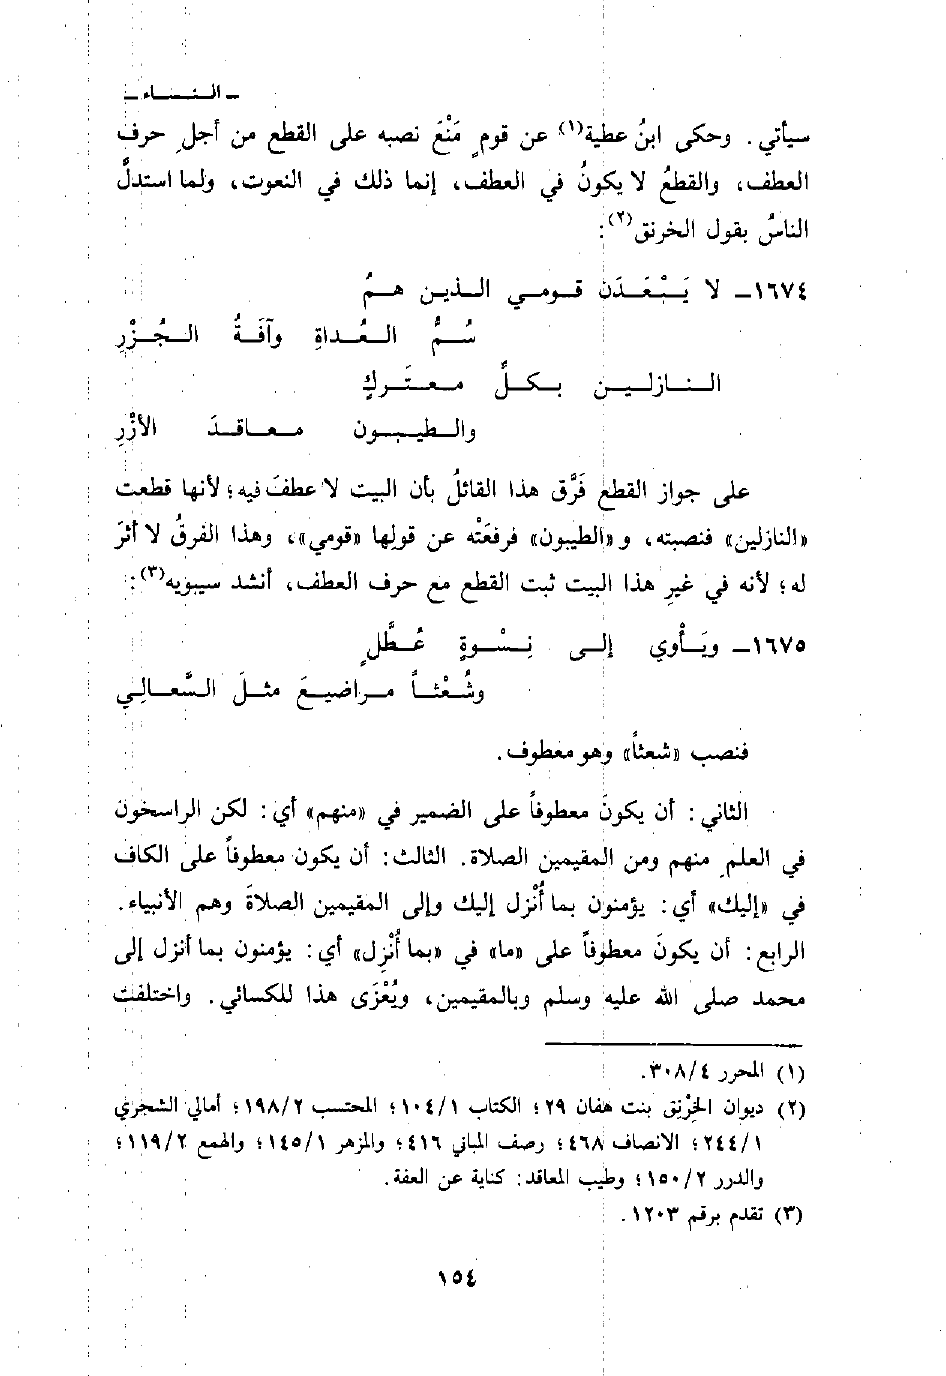 ـ النساء ـ
سيأتي. وحكى ابنُ عطية(١) عن قومٍ مَنْعَ نصبه على القطع من أجلِ حرف
العطف، والقطعُ لا يكونُ في العطف، إنما ذلك في النعوت، ولما استدلَّ
الناسُ بقول الخرنق(٢):
١٦٧٤ـ لا يَبْعَدَن قومي الذين همُ
سُمُّ العُداةِ وآفَةُ الجُزْرِ
النازلين بكلِّ معتَركٍ
والطيبون معاقدَ الأُزْرِ
على جواز القطع فَرَّق هذا القائلُ بأن البيت لا عطفَ فيه؛ لأنها قطعت
«النازلين» فنصبته، و«الطيبون» فرفعَتْه عن قولِها «قومي»، وهذا الفرقُ لا أثرَ
له؛ لأنه في غيرِ هذا البيت ثبت القطع مع حرف العطف، أنشد سيبويه(٣):
١٦٧٥ـ ويَأْوي إلى نِسْوةٍ عُطَّلٍ
وشُعْثاً مراضيعَ مثلَ السَّعالِي
فنصب «شعثاً» وهو معطوف.
الثاني: أن يكونَ معطوفاً على الضمير في «منهم» أي: لكن الراسخون
في العلمِ منهم ومن المقيمين الصلاة. الثالث: أن يكون معطوفاً على الكاف
في «إليك» أي: يؤمنون بما أُنْزل إليك وإلى المقيمين الصلاةَ وهم الأنبياء.
الرابع: أن يكونَ معطوفاً على «ما» في «بما أُنْزِل» أي: يؤمنون بما أنزل إلى
محمد صلى الله عليه وسلم وبالمقيمين، ويُعْزَى هذا للكسائي. واختلفت
(١) المحرر ٤/٣٠٨.
(٢) ديوان الخِرْنِق بنت هفان ٢٩؛ الكتاب ١/١٠٤؛ المحتسب ٢/١٩٨؛ أمالي الشجري
١/٢٤٤؛ الانصاف ٤٦٨؛ رصف المباني ٤١٦؛ والمزهر ١/١٤٥؛ والهمع ٢/١١٩؛
والدرر ٢/١٥٠؛ وطيب المعاقد: كناية عن العفة.
(٣) تقدم برقم ١٢٠٣.
١٥٤